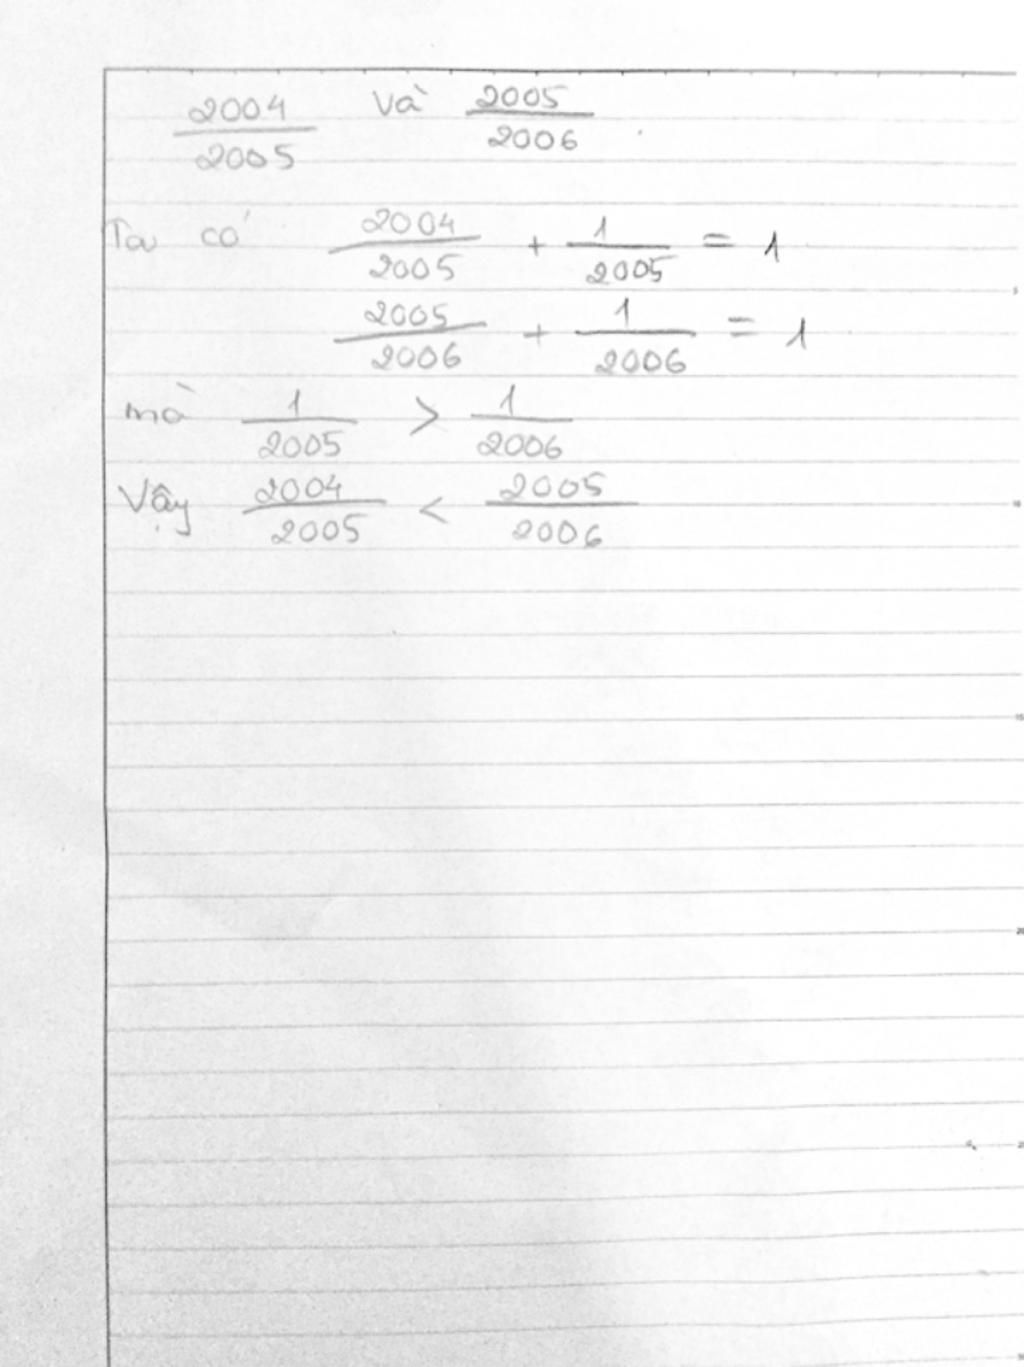 2004/2005 và 2005/2006
Ta có 2004/2005 + 1/2005 = 1
2005/2006 + 1/2006 = 1
mà 1/2005 > 1/2006
Vậy 2004/2005 < 2005/2006